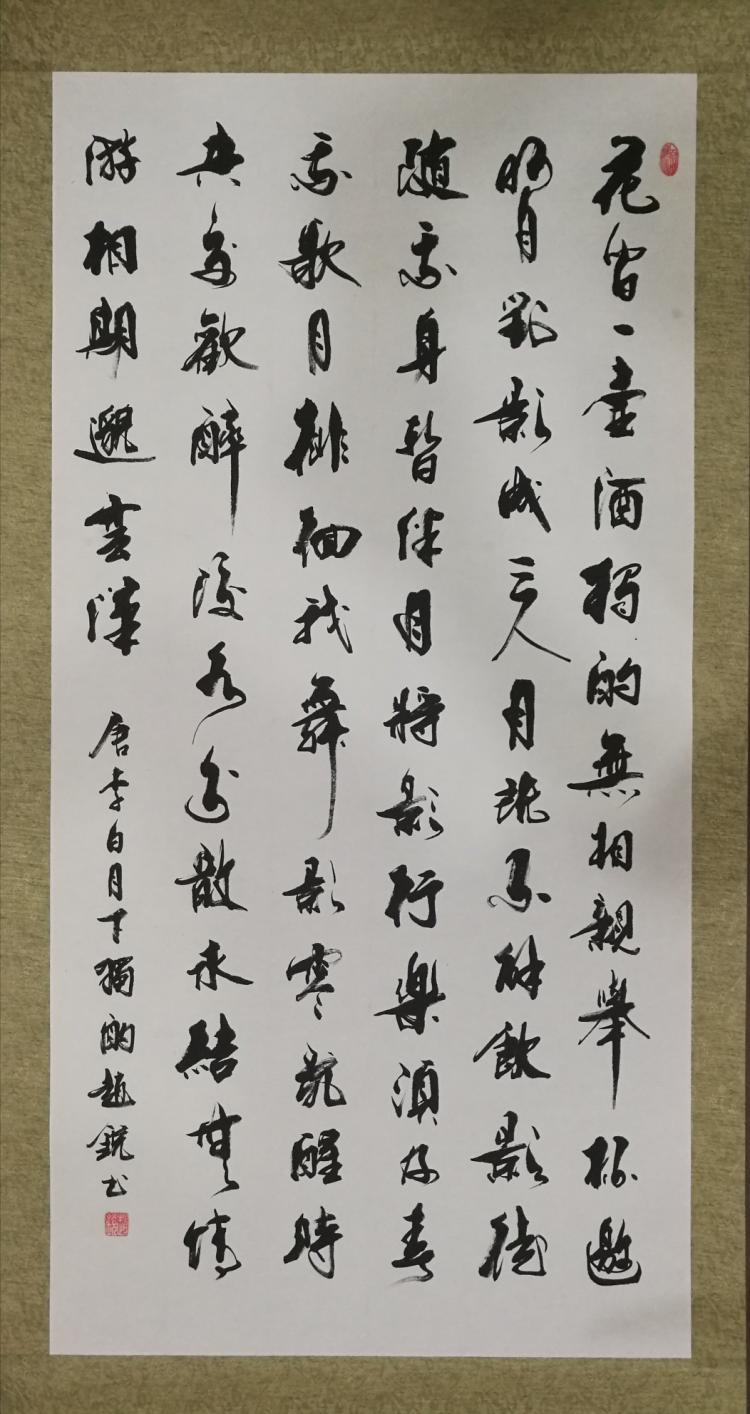 花間一壺酒獨酌無相親舉杯邀
明月對影成三人月既不解飲影徒
隨我身暫伴月將影行樂須及春
我歌月徘徊我舞影零亂醒時
共交歡醉後各分散永結無情
游相期邈雲漢 唐李白月下獨酌趙銳书